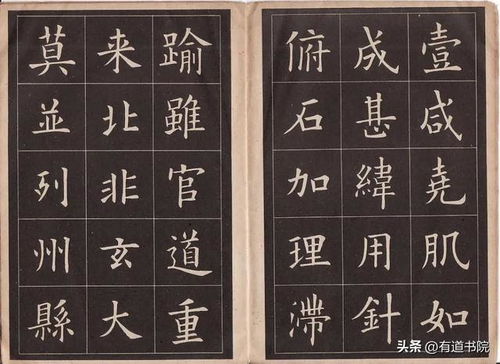 壹咸堯肌如
成甚緯用針
俯石加理滯
踰雖官道重
来北非玄大
莫並列州縣
头条 @有道书院